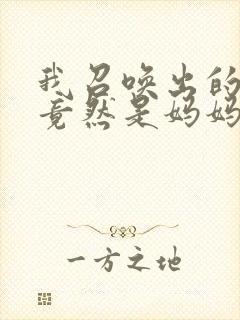 我召唤出的
竟然是妈妈
一方之地